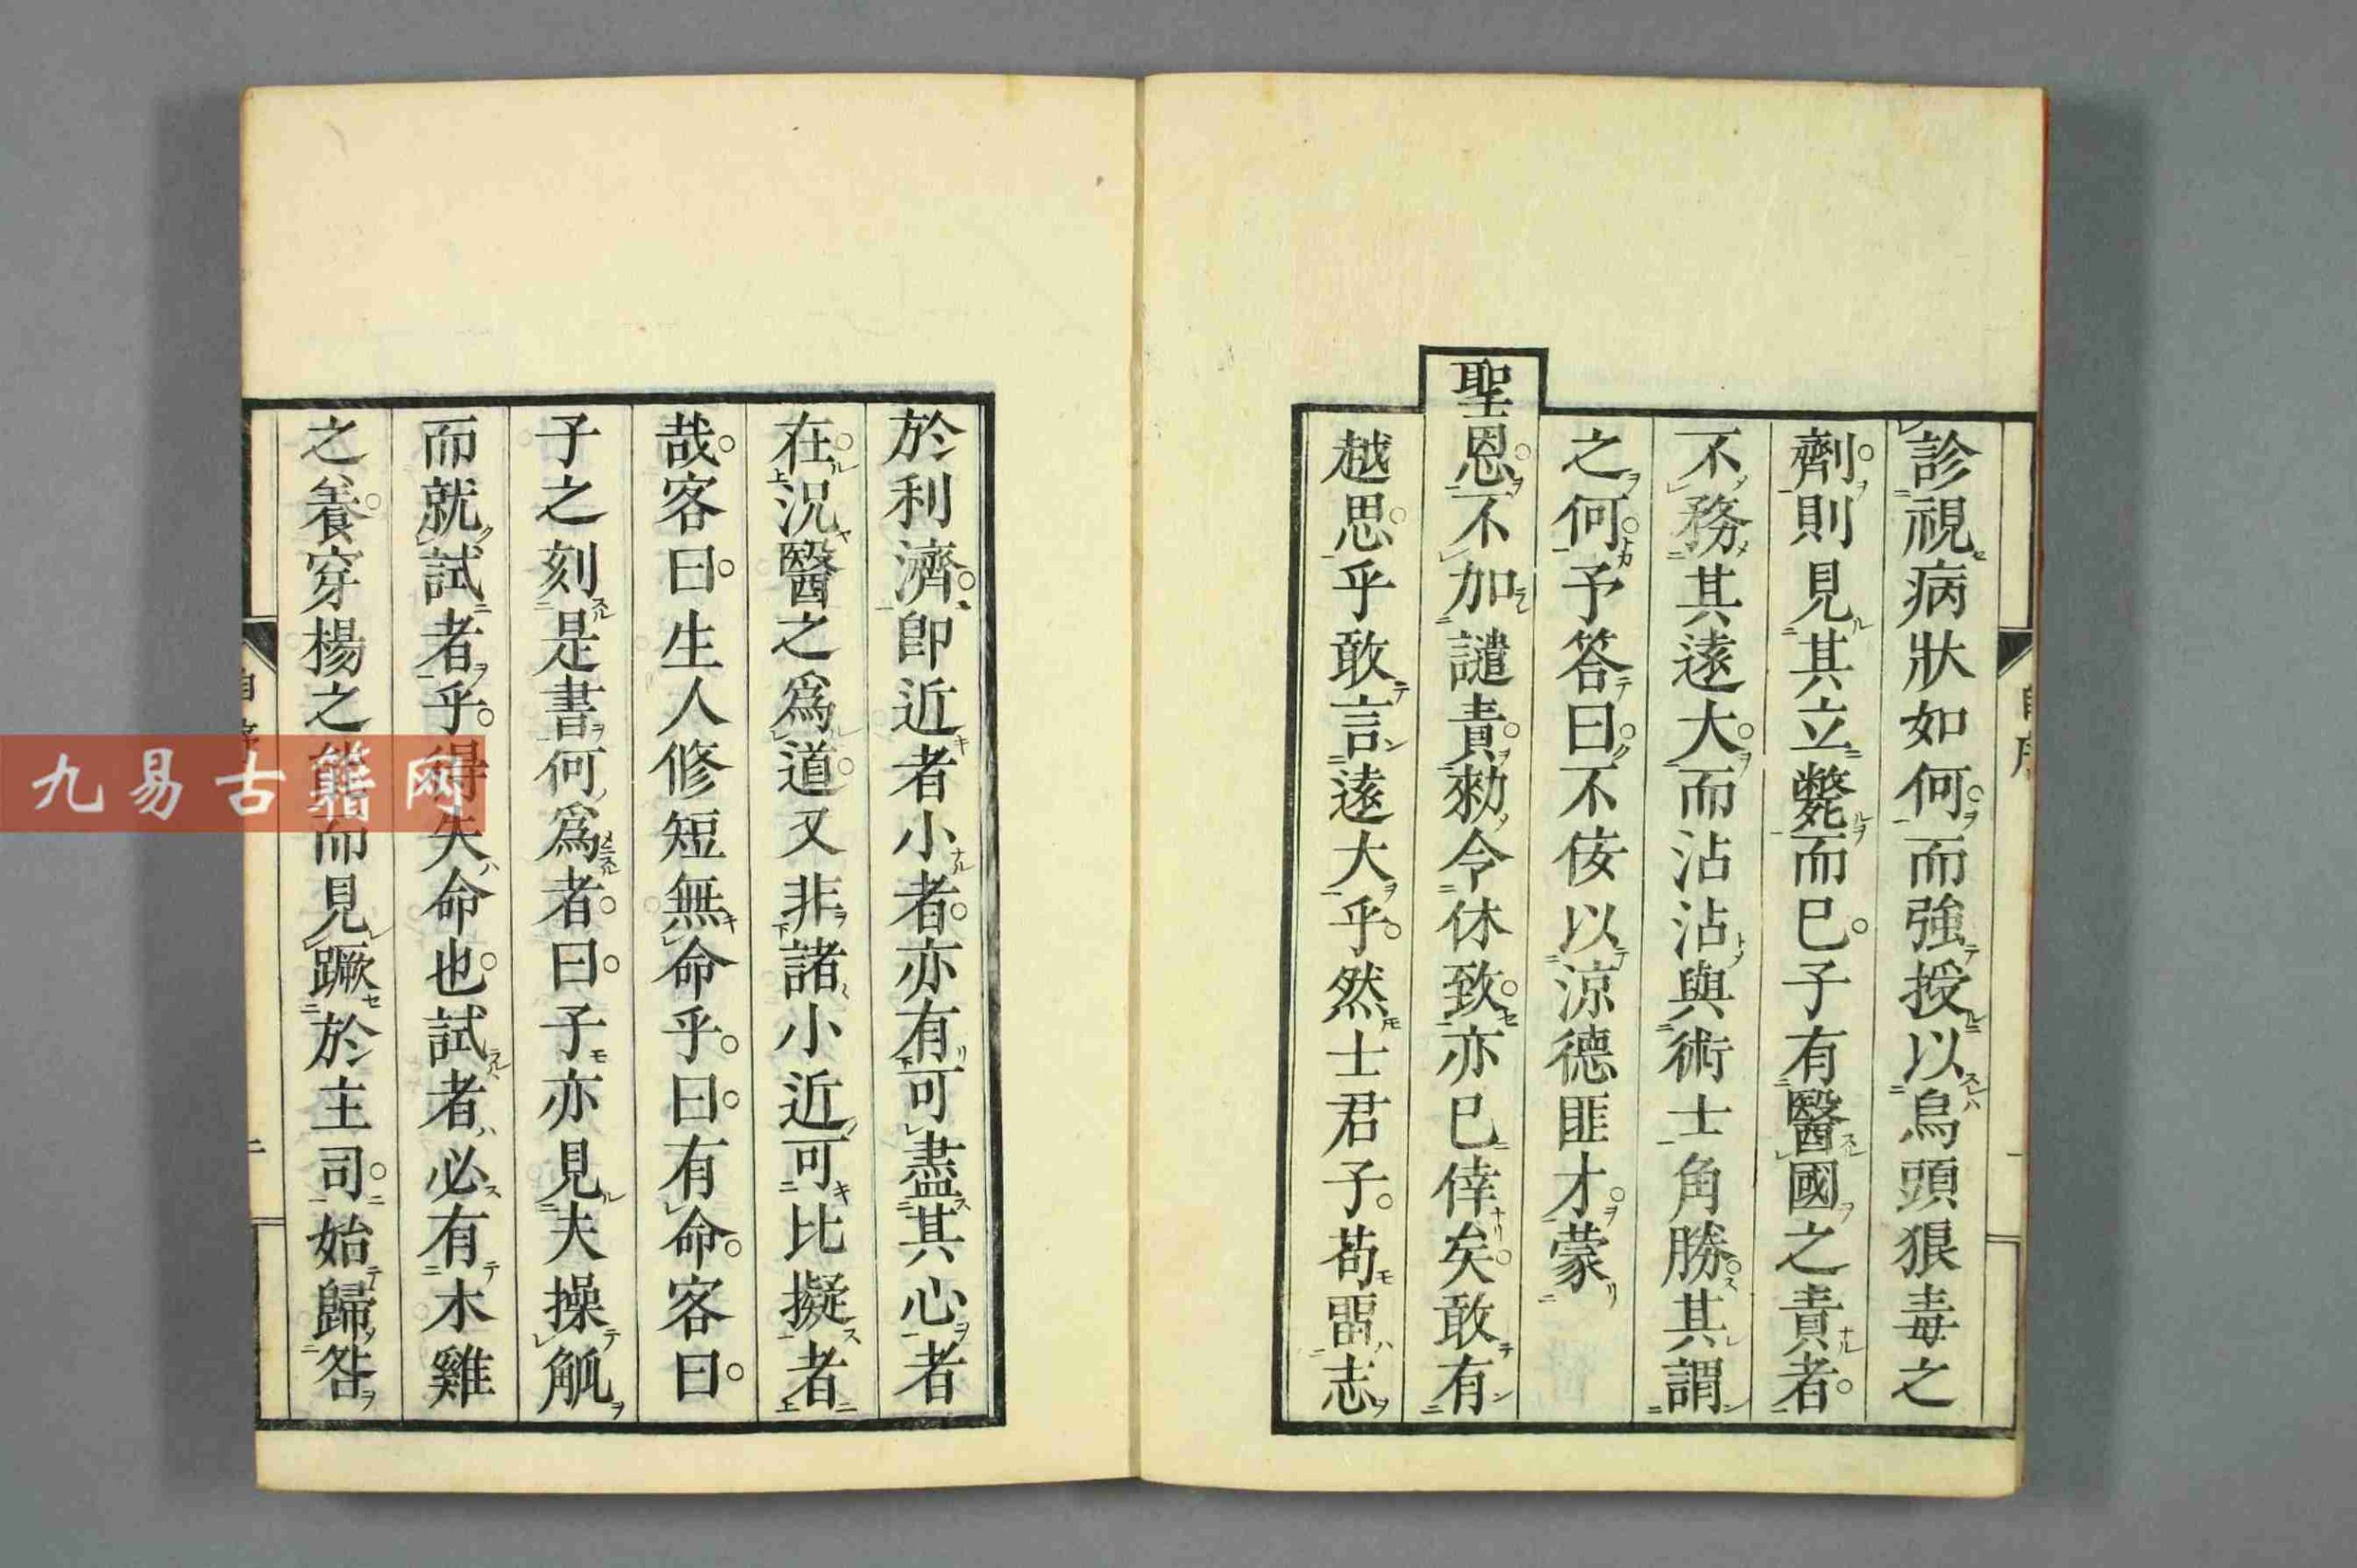 診視病狀如何而強授以烏頭狼毒之
劑則見其立斃而已子有醫國之責者
不務其遠大而沾沾與術士角勝其謂
之何予答曰不佞以涼德匪才蒙
聖恩不加譴責勑令休致亦已倖矣敢有
越思乎敢言遠大乎然士君子苟畱志
於利濟即近者小者亦有可盡其心者
在況醫之爲道又非諸小近可比擬者
哉客曰生人修短無命乎曰有命客曰
子之刻是書何爲者曰子亦見夫操觚
而就試者乎得失命也試者必有木雞
之養穿楊之能而見蹶於主司始歸咎
自序
二
九易古籍网